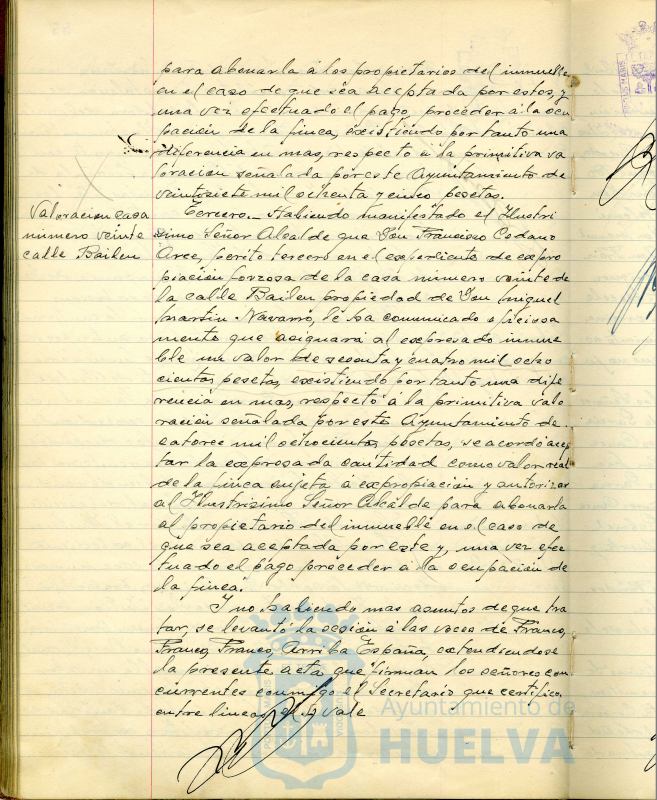 para abonarla á los propietarios del inmueble
en el caso de que sea aceptada por estos, y
una vez efectuado el pago, proceder á la ocu
pación de la finca, existiendo por tanto una
diferencia en mas, respecto á la primitiva va
loración señalada por este Ayuntamiento de
veintisiete mil ochenta y cinco pesetas.
Valoracion casa
número veinte
calle Bailen
Tercero.- Habiendo manifestado el Ilustri
simo Señor Alcalde que Don Francisco
Arce, perito tercero en el expediente de expro
piación forzosa de la casa número veinte de
la calle Bailen propiedad de Don Miguel
Martin Navarro, le ha comunicado oficiosa
mente que asignará al expresado inmue
ble un valor de sesenta y cuatro mil ocho
cientas pesetas, existiendo por tanto una dife
rencia en mas, respecto á la primitiva valo
ración señalada por este Ayuntamiento de
catorce mil ochocientas pesetas, se acordó acep
tar la expresada cantidad como valor real
de la finca sujeta á expropiación y autorizar
al Ilustrisimo Señor Alcalde para abonarla
al propietario del inmueble en el caso de
que sea aceptada por este y, una vez efec
tuado el pago proceder á la ocupación de
la finca.
Y no habiendo mas asuntos de que tra
tar, se levantó la sesión á las voces de Franco,
Franco, Franco, Arriba España, extendiendose
la presente acta que firman los señores con
currentes conmigo el Secretario que certifico.
entre lineas vale
Ayuntamiento de
HUELVA